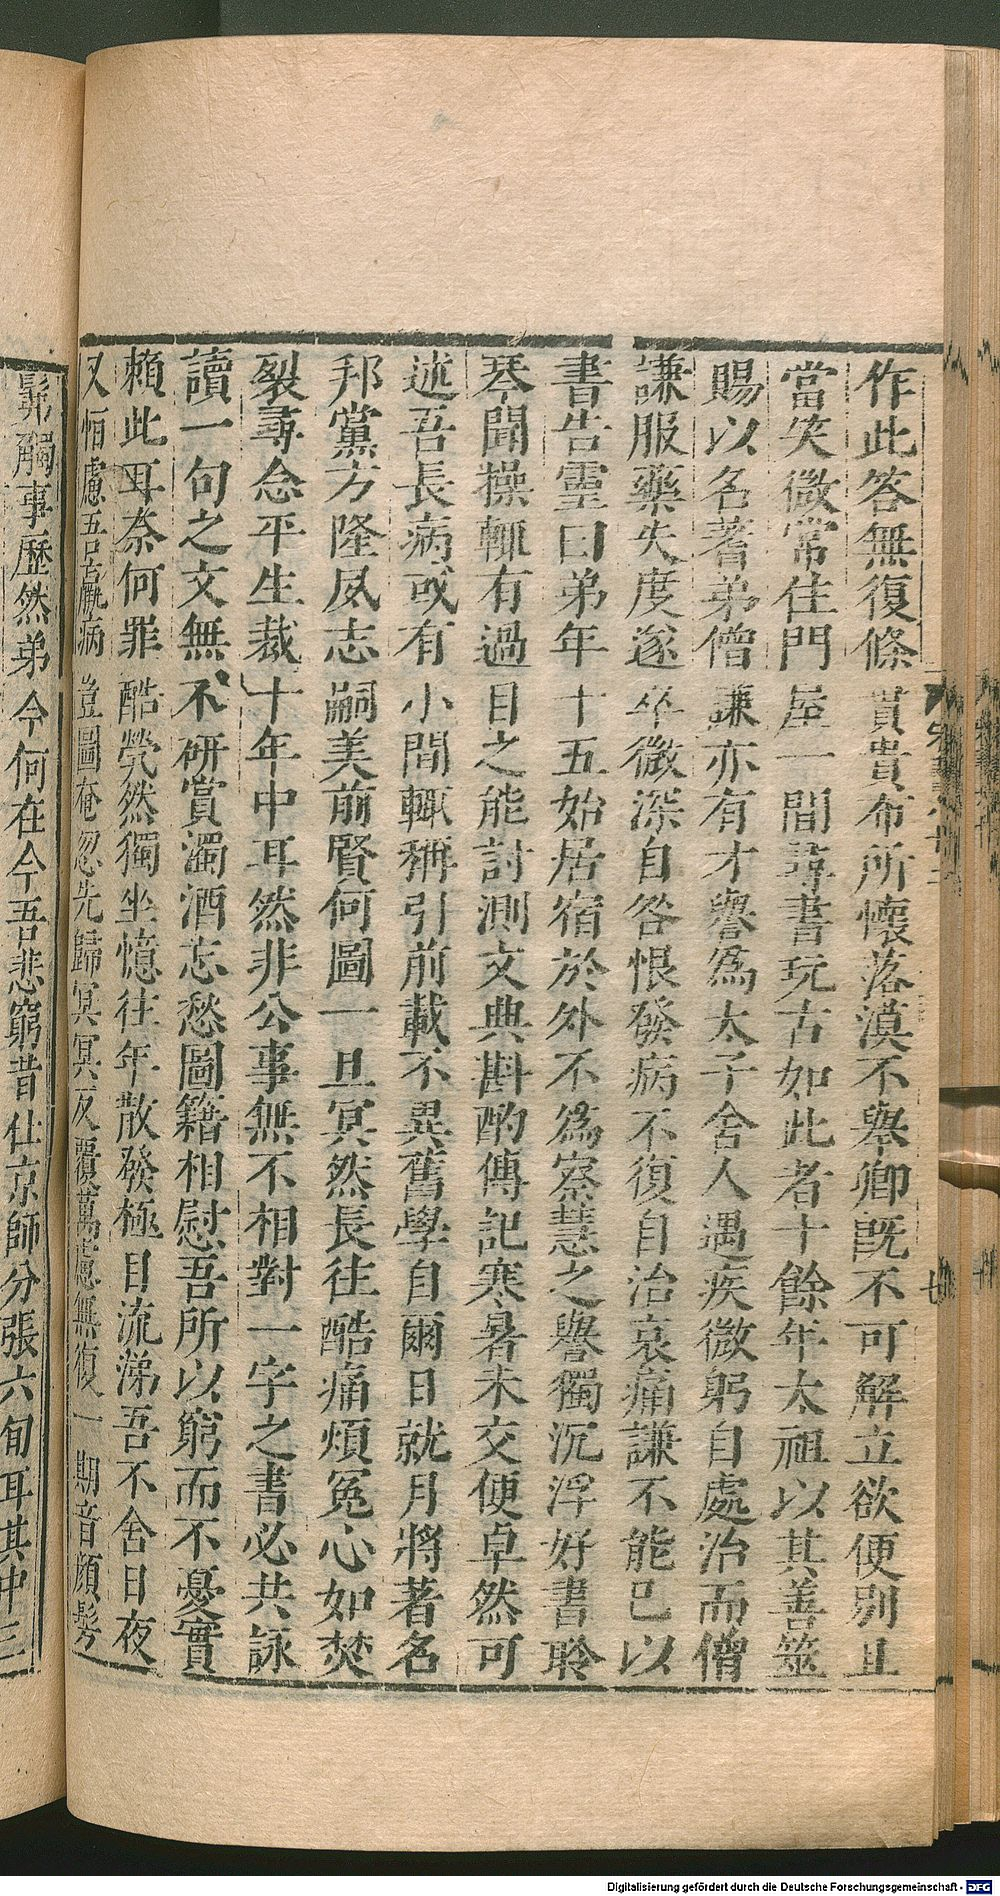 作此答無復條貫貴布所懷落漠不舉卿既不可解立欲便別且
當笑微常住門屋一間尋書玩古如此者十餘年太祖以其善筮
賜以名著弟僧謙亦有才譽爲太子舍人遇疾微躬自處治而僧
謙服藥失度遂卒微深自咎恨發病不復自治哀痛謙不能已以
書告靈曰弟年十五始居宿於外不爲察慧之譽獨沉浮好書聆
琴聞操輒有過目之能討測文典斟酌傳記寒暑未交便卓然可
述吾長病或有小間輒稱引前載不異舊學自爾日就月將著名
邦黨方隆夙志嗣美前賢何圖一旦冥然長往酷痛煩冤心如焚
裂尋念平生裁十年中耳然非公事無不相對一字之書必共詠
讀一句之文無不研賞濁酒忘愁圖籍相慰吾所以窮而不憂實
賴此耳奈何罪酷煢然獨坐憶往年散發極目流涕吾不舍日夜
又恒慮吾羸病豈圖奄忽先歸冥冥反覆萬慮無復一期音顏髣
髴觸事歷然弟今何在令吾悲窮昔仕京師分張六旬耳其中三
七
Digitalisierung gefördert durch die Deutsche Forschungsgemeinschaft - DFG